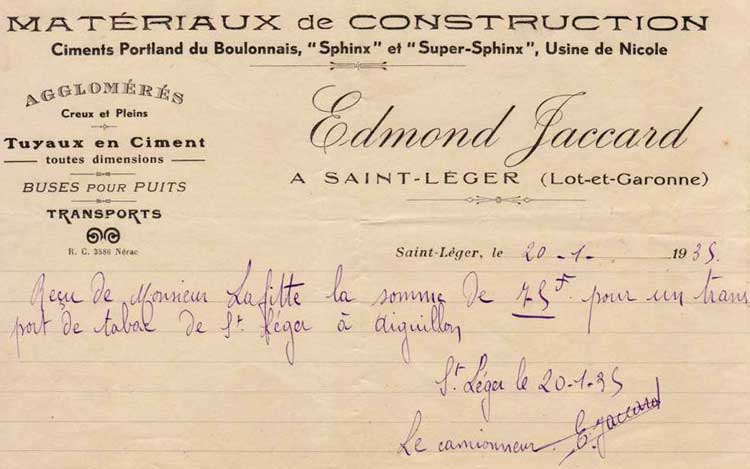 MATÉRIAUX de CONSTRUCTION
Ciments Portland du Boulonnais, "Sphinx" et "Super-Sphinx", Usine de Nicole
AGGLOMÉRÉS
Creux et Pleins
Tuyaux en Ciment
toutes dimensions
BUSES POUR PUITS
TRANSPORTS
R. C. 3586 Nérac
Edmond Jaccard
A SAINT-LÉGER (Lot-et-Garonne)
Saint-Léger, le 20-1- 1935.
Reçu de Monsieur Lafitte la somme de 75f pour un trans
port de tabac de St Léger à Aiguillon
St Léger le 20-1-35
Le camionneur E. Jaccard